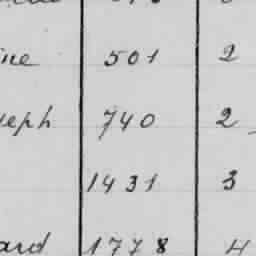 501 2
eph 740 2
1431 3
ard 1778 4